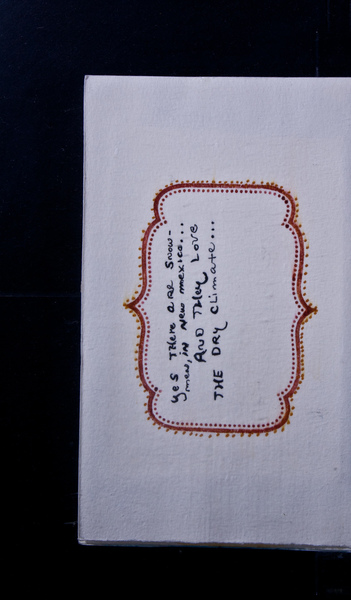 yes THere aRe SNOW-
men, in New mexico...
AND THey LOVe
THE DRY CLimate...